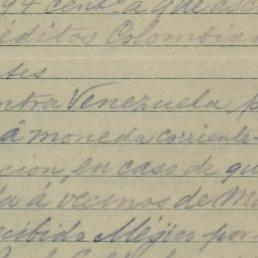 94 cents á que asc
éditos Colombia
tes
ontra Venezuela p
á moneda corriente
cion, en caso de qu
da á vecinos de M
ecibido Méjico por